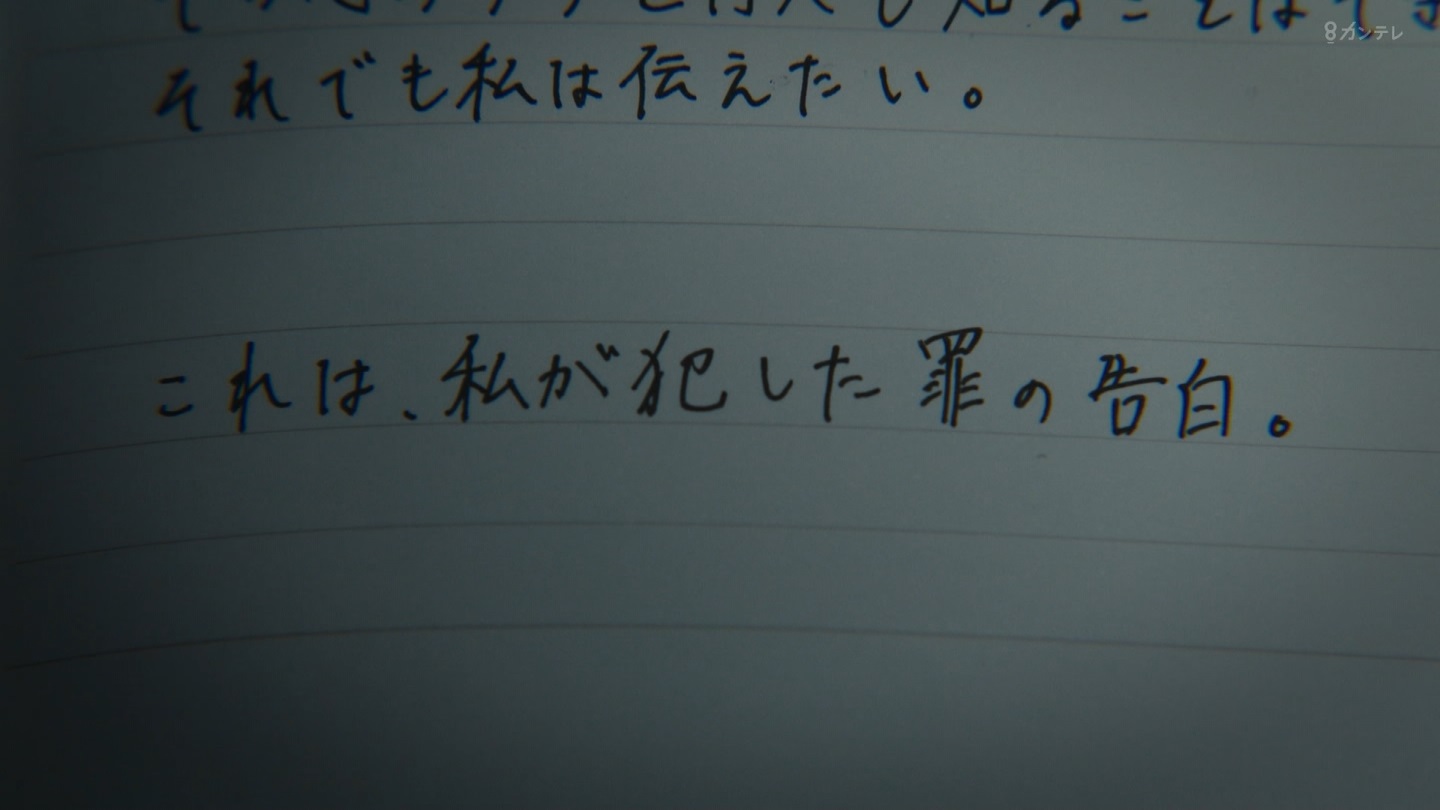 それでも私は伝えたい。
これは、私が犯した罪の告白。
カンテレ